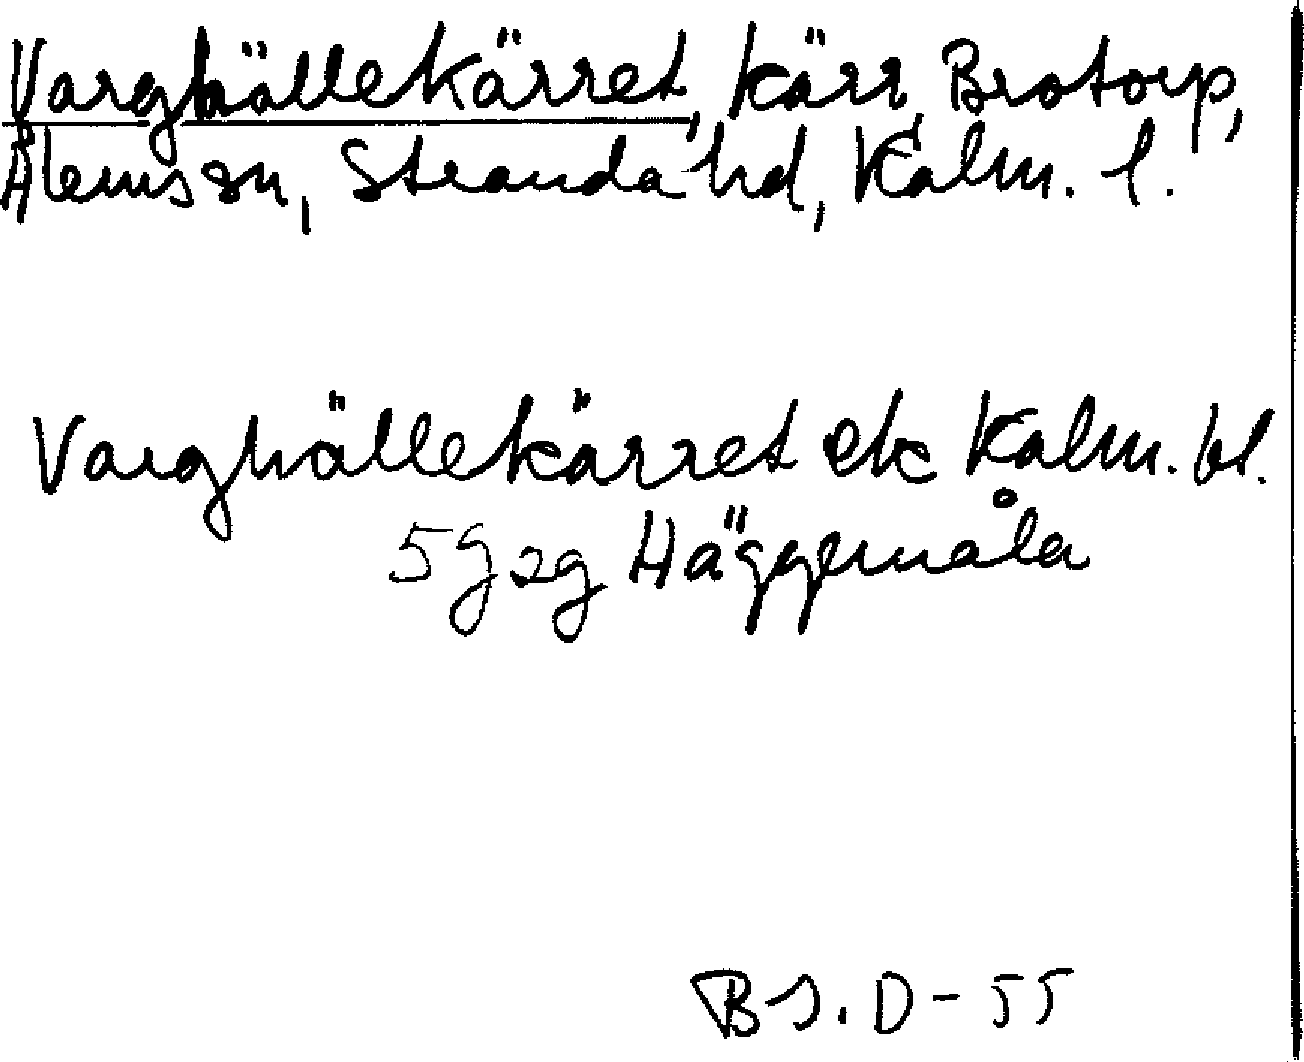 Varghällekärret, kärr Brotorp,
Ålems sn, Stranda hd, Kalm. l.
Varghällekärret ek Kalm. bl.
5g2g Häggemåla
BJ.D-55